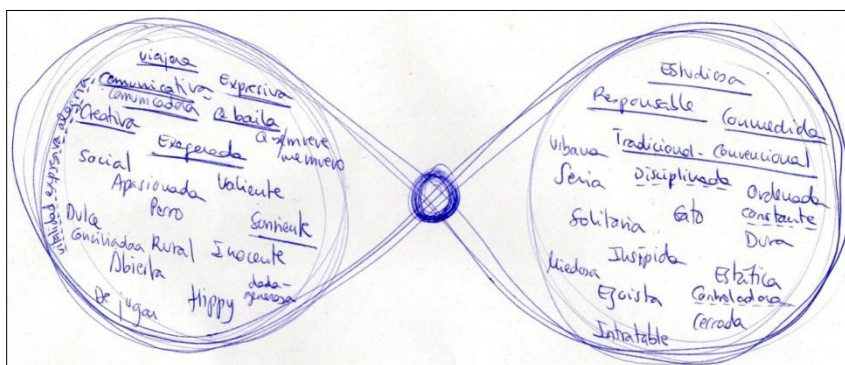 viajera
Comunicativa Expresiva
comunicadora Q baila
Creativa Q se mueve
Exagerada me muevo
Social
Apasionada Valiente
Perro
Sonriente
Dulce
Conciliadora Rural Inocente
Abierta
dada-
generosa
De jugar Hippy
vitalidad expresiva alegría
Estudiosa
Responsable Conmedida
Urbana Tradicional-Convencional
Seria Disciplinada Ordenada
Solitaria Gato constante
Dura
Insípida
Miedosa Estática
Egoista Controladora
Cerrada
Intratable